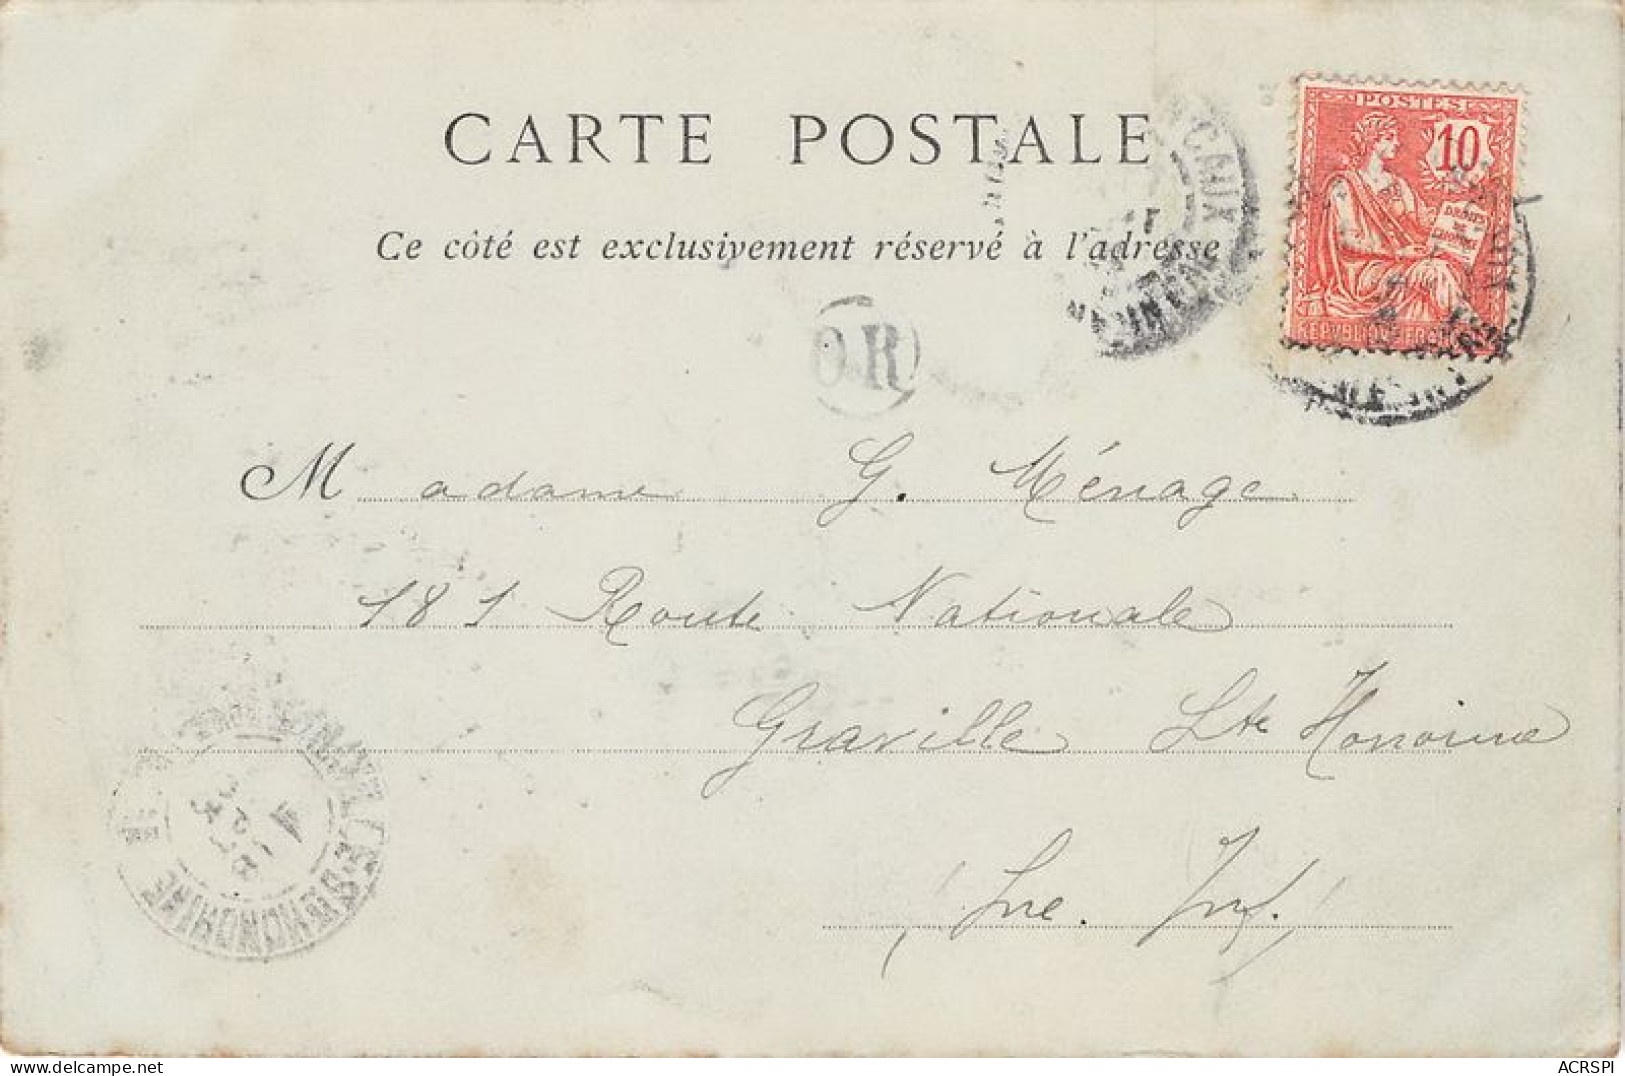 CARTE POSTALE
Ce côté est exclusivement réservé à l'adresse
POSTES
10
DROITS
DE
L'HOMME
REPUBLIQUE FRAN
CAUX
OR
Madame G. Ménage
181 Route Nationale
Graville Ste Honorine
(Sne. Inf.)
HONORINE
ACRSPI